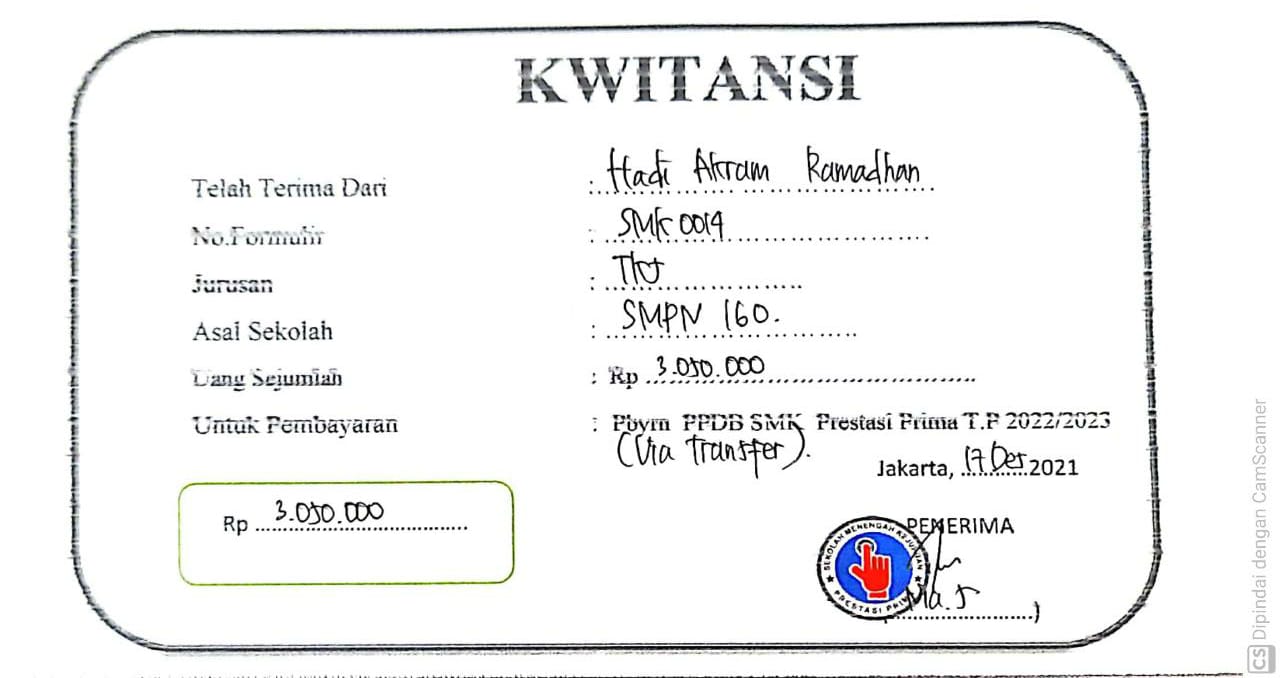 KWITANSI
Telah Terima Dari : Hadi Akram Ramadhan
No.Formulir : SMK 0014
Jurusan : TKJ
Asal Sekolah : SMPN 160.
Uang Sejumlah : Rp 3.050.000
Untuk Pembayaran : Pbyrn PPDB SMK Prestasi Prima T.P 2022/2023
(Via Transfer).
Jakarta, 17 Des 2021
Rp 3.050.000
PENERIMA
SEKOLAH MENENGAH KEJURUAN
PRESTASI PRIMA
CS Dipindai dengan CamScanner